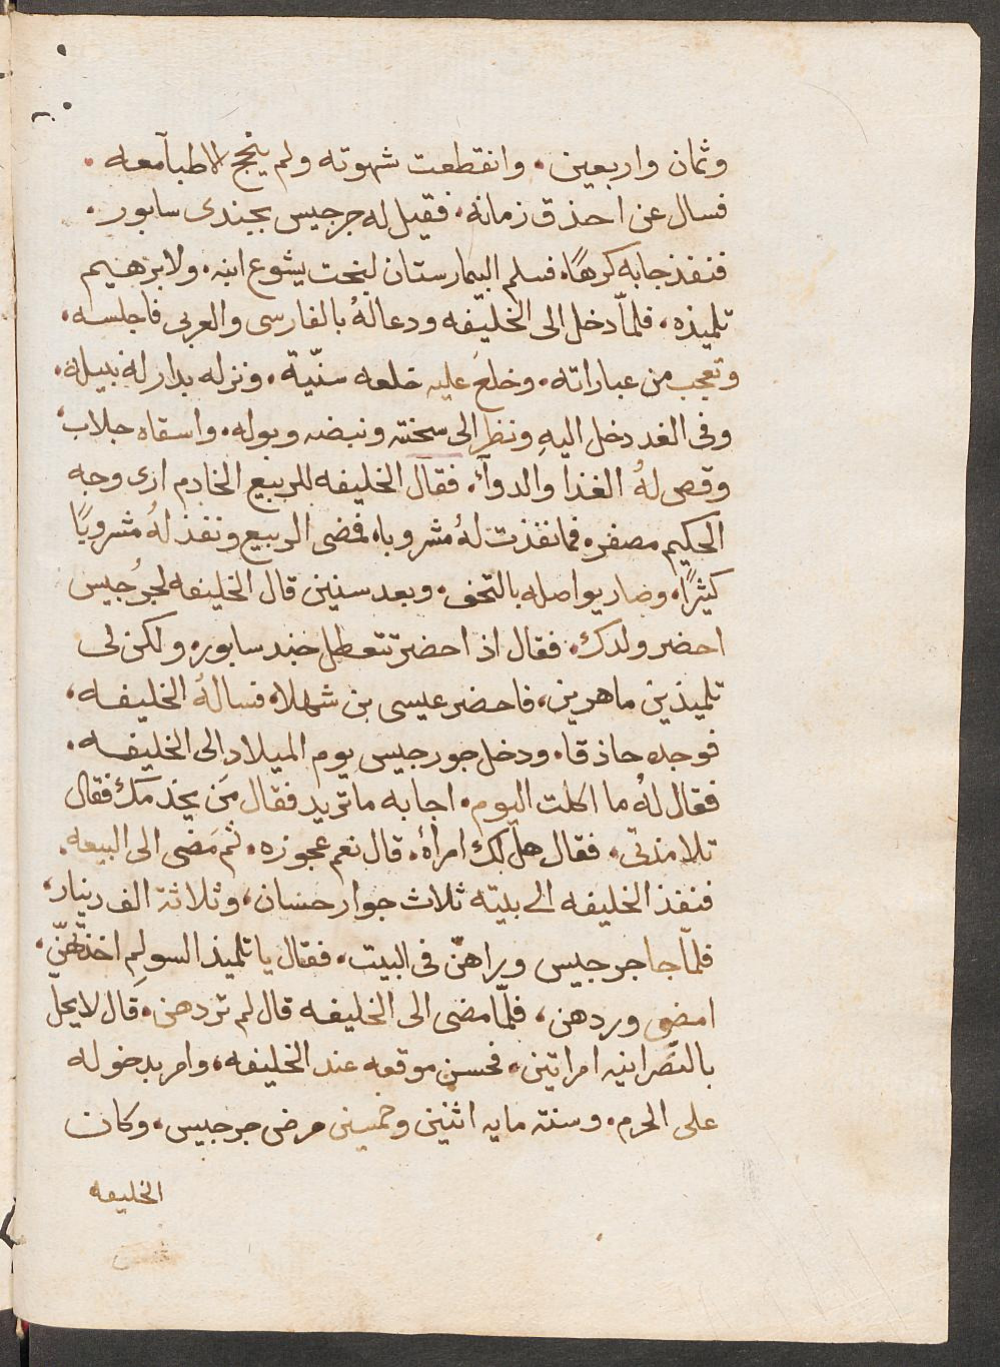 وثمان واربعين. وانقطعت شهوته ولم ينجح الاطبآ معه.
فسال عن احذق زمانه. فقيل له جرجيس بجندى سابور.
فنفذ جابه كرهًا. فسلم البيمارستان لبخت يشوع ابنه. ولابرهيم
تلميذه. فلمّا دخل الى الخليفه ودعا لهُ بالفارسى والعربى فاجلسه.
وتعجب من عباراته. وخلعَ عليه خلعه سنّية. ونزله بدار له نبيله.
وفى الغد دخل اليهِ ونظر الى سحنته ونبضه وبوله. واسقاه جلاب.
وقص لهُ الغذا والدوآء. فقال الخليفه للربيع الخادم ارى وجه
الحكيم مصفر. فما نفذت لهُ مشروبا. فمضى الربيع ونفذ لهُ مشروبًا
كثيرًا. وصار يواصله بالتحف. وبعد سنين قال الخليفه لجُرجيس
احضر ولدك. فقال اذ احضر تتعطل جند سابور. ولكن لى
تلميذين ماهرين، فاحضر عيسى بن شهلا. فسالهُ الخليفه،
فوجده حاذقا. ودخل جورجيس يوم الميلاد الى الخليفه.
فقال لهُ ما اكلت اليوم. اجابه ما تريد فقال مَن يخدمَك فقال
تلامذتى. فقال هل لك امرأة. قال نعم عجوزه. ثم مَضى الى البيعه.
فنفذ الخليفه الى بيته ثلاث جوار حسان، وثلاثة الف دينار،
فلمّا جا جرجيس وراهنّ فى البيت. فقال يا تلميذ السو لِمِ اخذتهنّ.
امضِى وردهن، فلمّا مضى الى الخليفه قال لم تردهن. قال لا يحلّ
بالنَصرانيه امراتين. فحسن موقعه عند الخليفه، وامر بدخوله
على الحرم. وسنة مايه اثنين وخمسين مرض جرجيس. وكان
الخليفه